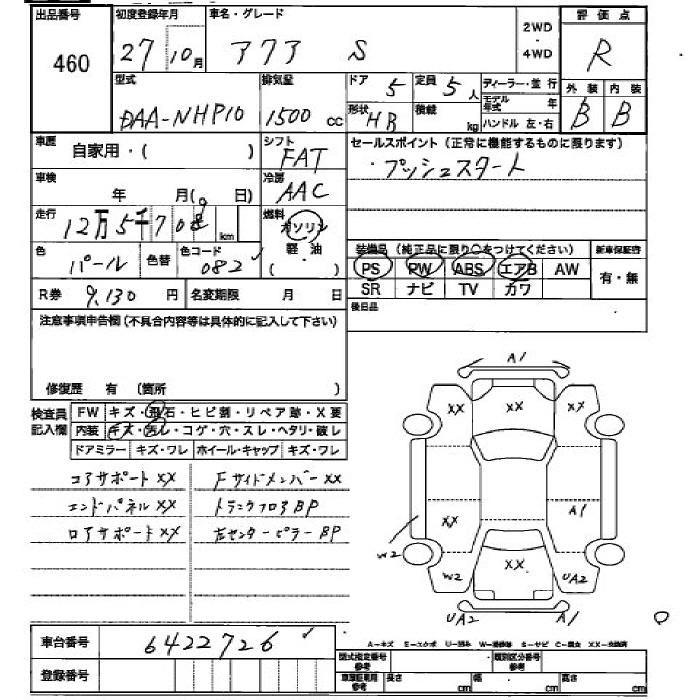 出品番号 初度登録年月 車名・グレード 2WD・4WD 評価点
460 27 10月 アクア S R
型式 排気量 ドア 5 定員 5人 ディーラー・並行 外装 内装
DAA-NHP10 1500 CC 形状 HB 積載 kg モデル年式 年 B B
ハンドル 左・右
車歴 自家用・( ) シフト FAT セールスポイント(正常に機能するものに限ります)
・プッシュスタート
車検 年 月( 日) 冷房 AAC
走行 12万5千70 km 燃料 ガソリン
軽油
( )
色 パール 色替 色コード 082 装備品(純正品に限り○をつけてください) 新車保証書
PS PW ABS エアB AW 有・無
SR ナビ TV カワ
R券 9,130 円 名変期限 月 日 後日品
注意事項申告欄(不具合内容等は具体的に記入して下さい)
修復歴 有 (箇所 )
検査員記入欄 FW キズ・飛石・ヒビ割・リペア跡・X要
内装 キズ・汚レ・コゲ・穴・スレ・ヘタリ・破レ
ドアミラー キズ・ワレ ホイール・キャップ キズ・ワレ
コアサポートXX FサイドメンバーXX
エンドパネルXX トランクフロアBP
ロアサポートXX 左センターピラーBP
A1
XX XX XX
XX A1
W2 XX
W2 UA2
UA2 A1
車台番号 6422726
A-キズ E-エクボ U-凹み W-補修跡 S-サビ C-腐食 XX-交換済
登録番号 型式指定番号 参考 類別区分番号 参考
車庫証明用 参考 長さ cm 幅 cm 高さ cm